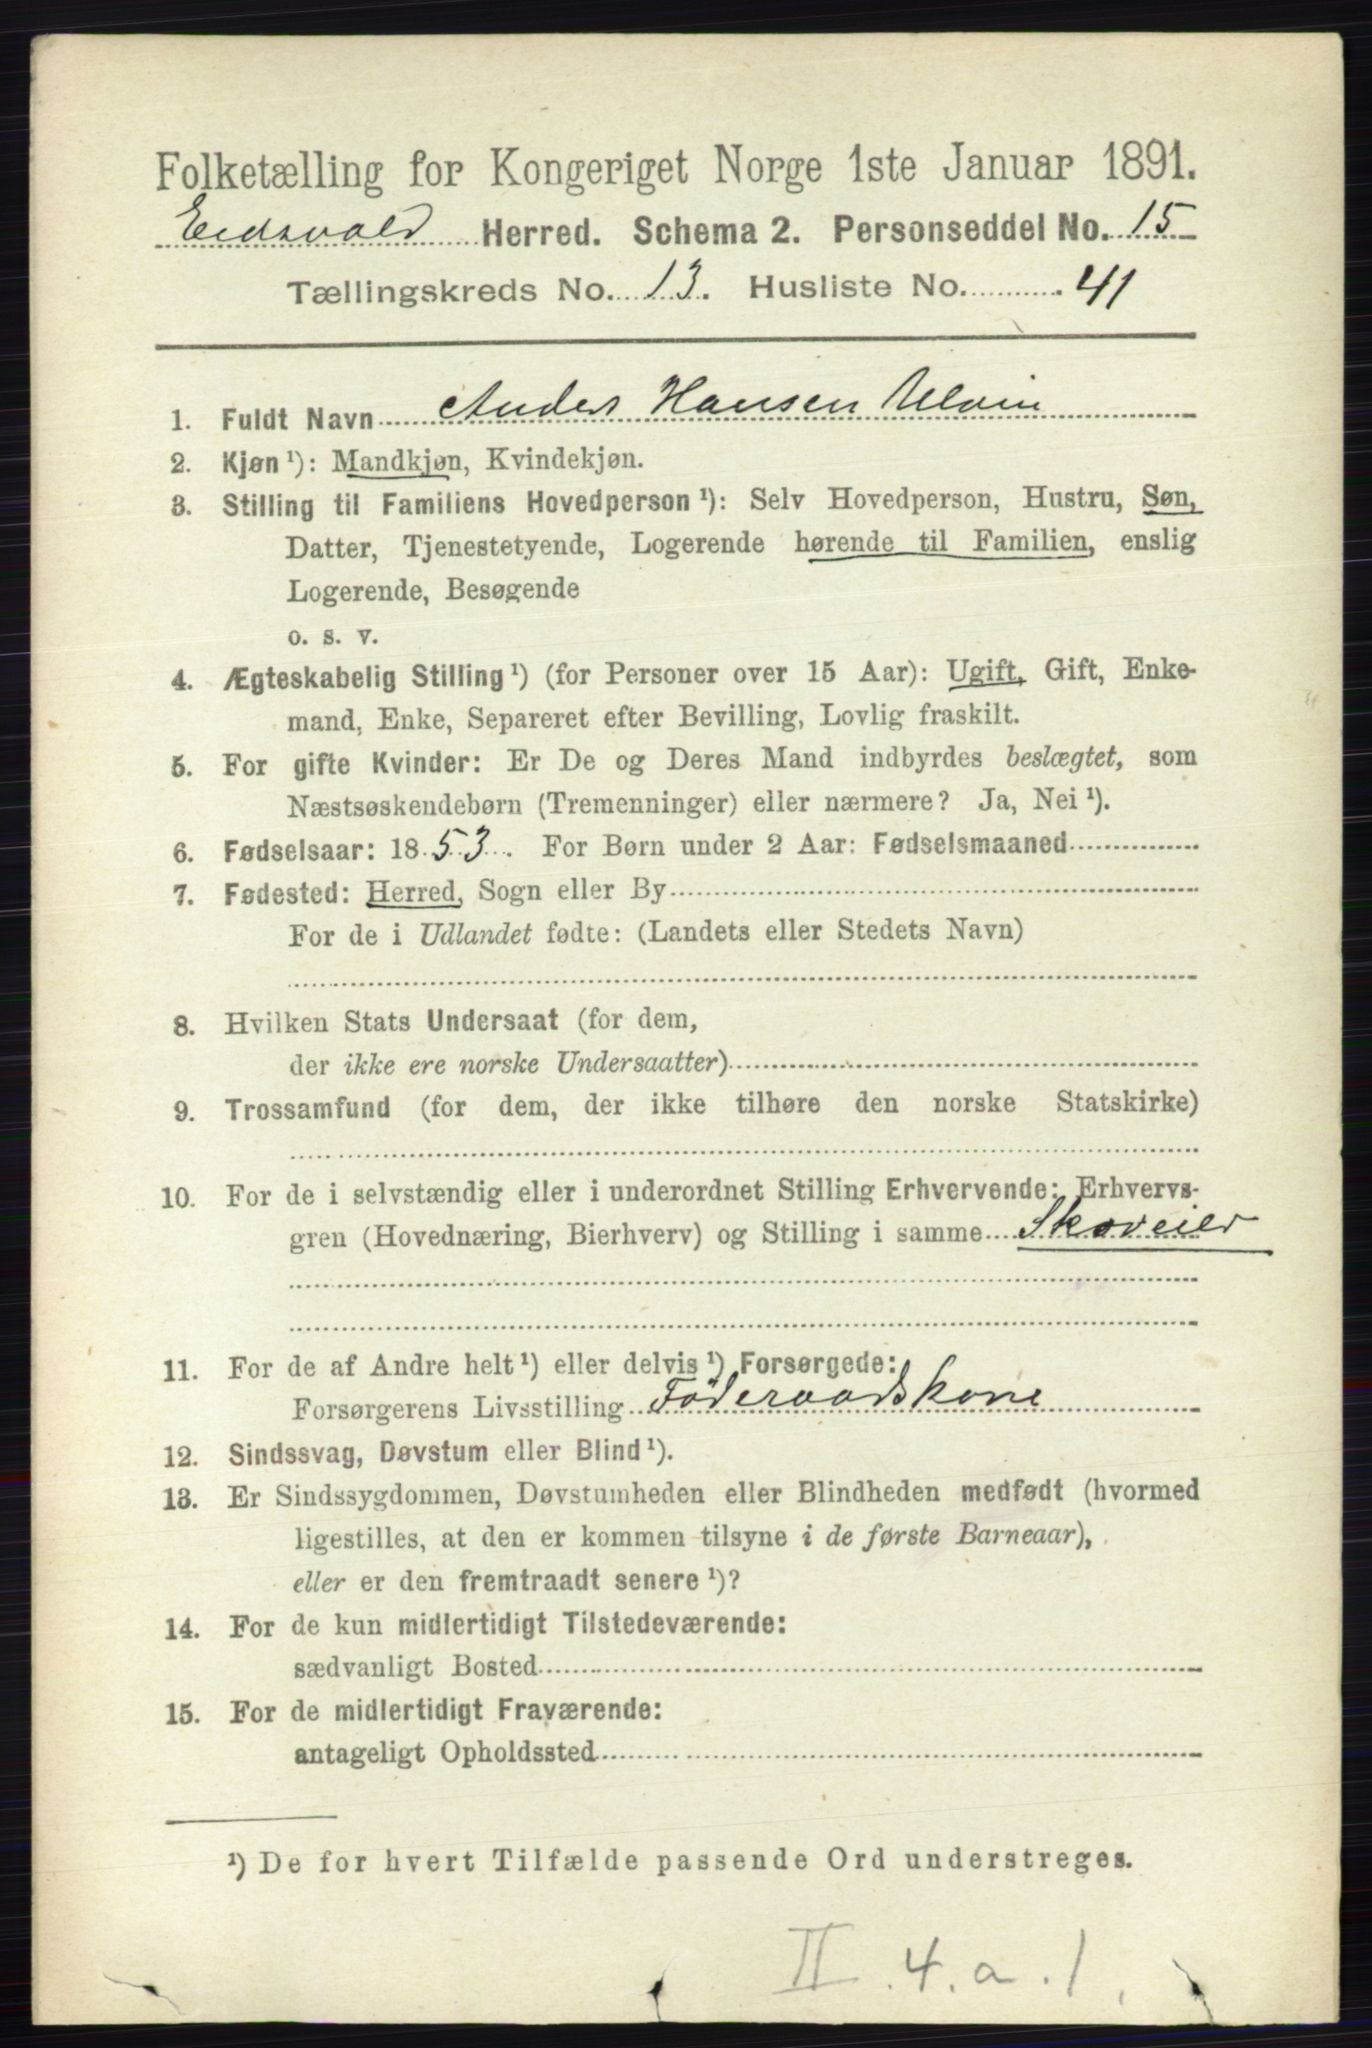 Folketælling for Kongeriget Norge 1ste Januar 1891.
Eidsvold Herred. Schema 2. Personseddel No. 15
Tællingskreds No. 13. Husliste No. 41
1. Fuldt Navn Anders Hansen Ulvin
2. Kjøn ¹): Mandkjøn, Kvindekjøn.
3. Stilling til Familiens Hovedperson ¹): Selv Hovedperson, Hustru, Søn,
Datter, Tjenestetyende, Logerende hørende til Familien, enslig
Logerende, Besøgende
o. s. v.
4. Ægteskabelig Stilling ¹) (for Personer over 15 Aar): Ugift, Gift, Enke-
mand, Enke, Separeret efter Bevilling, Lovlig fraskilt.
5. For gifte Kvinder: Er De og Deres Mand indbyrdes beslægtet, som
Næstsøskendebørn (Tremenninger) eller nærmere? Ja, Nei ¹).
6. Fødselsaar: 1853. For Børn under 2 Aar: Fødselsmaaned
7. Fødested: Herred, Sogn eller By
For de i Udlandet fødte: (Landets eller Stedets Navn)
8. Hvilken Stats Undersaat (for dem,
der ikke ere norske Undersaatter)
9. Trossamfund (for dem, der ikke tilhøre den norske Statskirke)
10. For de i selvstændig eller i underordnet Stilling Erhvervende: Erhvervs-
gren (Hovednæring, Bierhverv) og Stilling i samme Skoveier
11. For de af Andre helt ¹) eller delvis ¹) Forsørgede:
Forsørgerens Livsstilling Föderaadskone
12. Sindssvag, Døvstum eller Blind ¹).
13. Er Sindssygdommen, Døvstumheden eller Blindheden medfødt (hvormed
ligestilles, at den er kommen tilsyne i de første Barneaar),
eller er den fremtraadt senere ¹)?
14. For de kun midlertidigt Tilstedeværende:
sædvanligt Bosted
15. For de midlertidigt Fraværende:
antageligt Opholdssted
¹) De for hvert Tilfælde passende Ord understreges.
II. 4. a. 1.